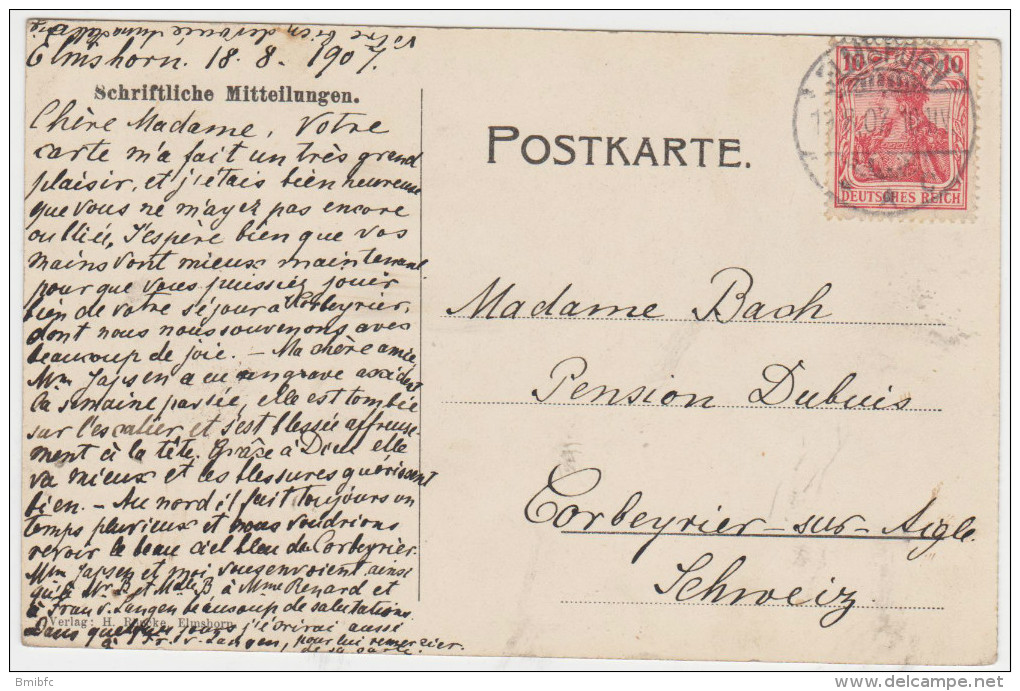 Votre bien dévouée
Elmshorn. 18. 8. 1907.
Schriftliche Mitteilungen.
Chère Madame, Votre
carte m'a fait un très grand
plaisir, et j'étais bien heureuse
que vous ne m'ayez pas encore
oubliée. J'espère bien que vos
mains vont mieux maintenant
pour que vous puissiez jouir
bien de votre séjour à Corbeyrier,
dont nous nous souvenons avec
beaucoup de joie. – Ma chère amie
Mme Japsen a eu un grave accident
la semaine passée, elle est tombée
sur l'escalier et s'est blessée affreuse-
ment à la tête. Grâce à Dieu elle
va mieux et les blessures guérissent
bien. – Au nord il fait toujours un
temps pluvieux et nous voudrions
revoir le beau ciel bleu de Corbeyrier.
Mme Japsen et moi vous envoient ainsi
qu'à Mr. B et Mlle B à Mme Renard et
à Frau v. Langen beaucoup de salutations
Verlag: H. Elmshorn
Dans quelques jours j'écrirai aussi
à Fr. v. Langen, pour lui remercier
de sa carte.
POSTKARTE.
ELMSHORN
10 10
DEUTSCHES REICH
Madame Bach
Pension Dubuis
Corbeyrier-sur-Aigle.
Schweiz
Bmibfc
delcampe.net